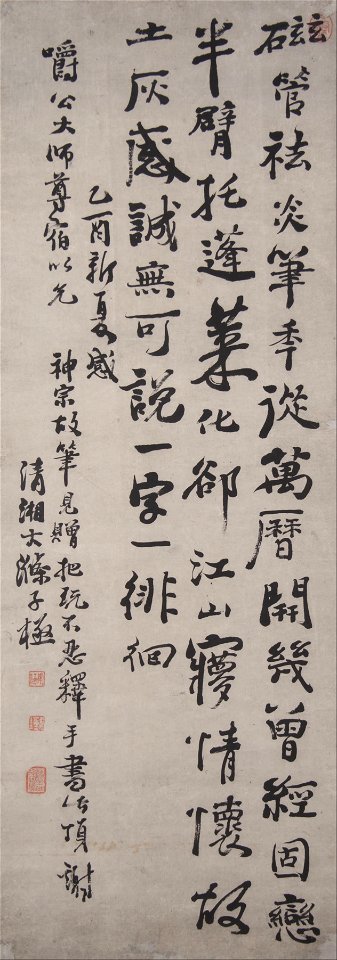 磁管祛炎筆季從萬曆開幾曾經固戀
半臂托蓬萊化卻江山寥情懷故
土灰感誠無可說一字一徘徊
乙酉新夏感
嚼公大師尊宿以
神宗故筆見贈把玩不忍釋手書此頂謝
清湘大滌子極